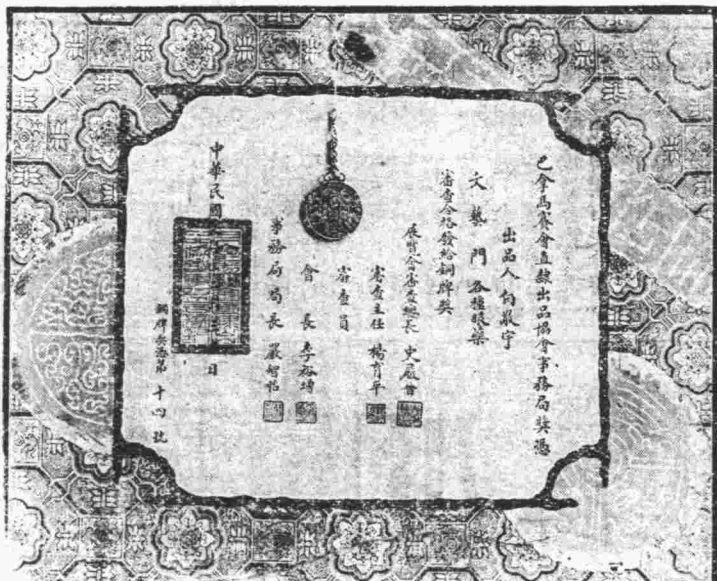 巴拿馬賽會直隸出品協會事務局獎憑
出品人向敬宇
文藝門各種眼藥
審查合格發給銅牌獎
展覽會審查總長 史履晉
審查主任 楊育平
審查員
會長 李裕增
事務局局長 嚴智怡
中華民國 日
銅牌獎憑第十四號